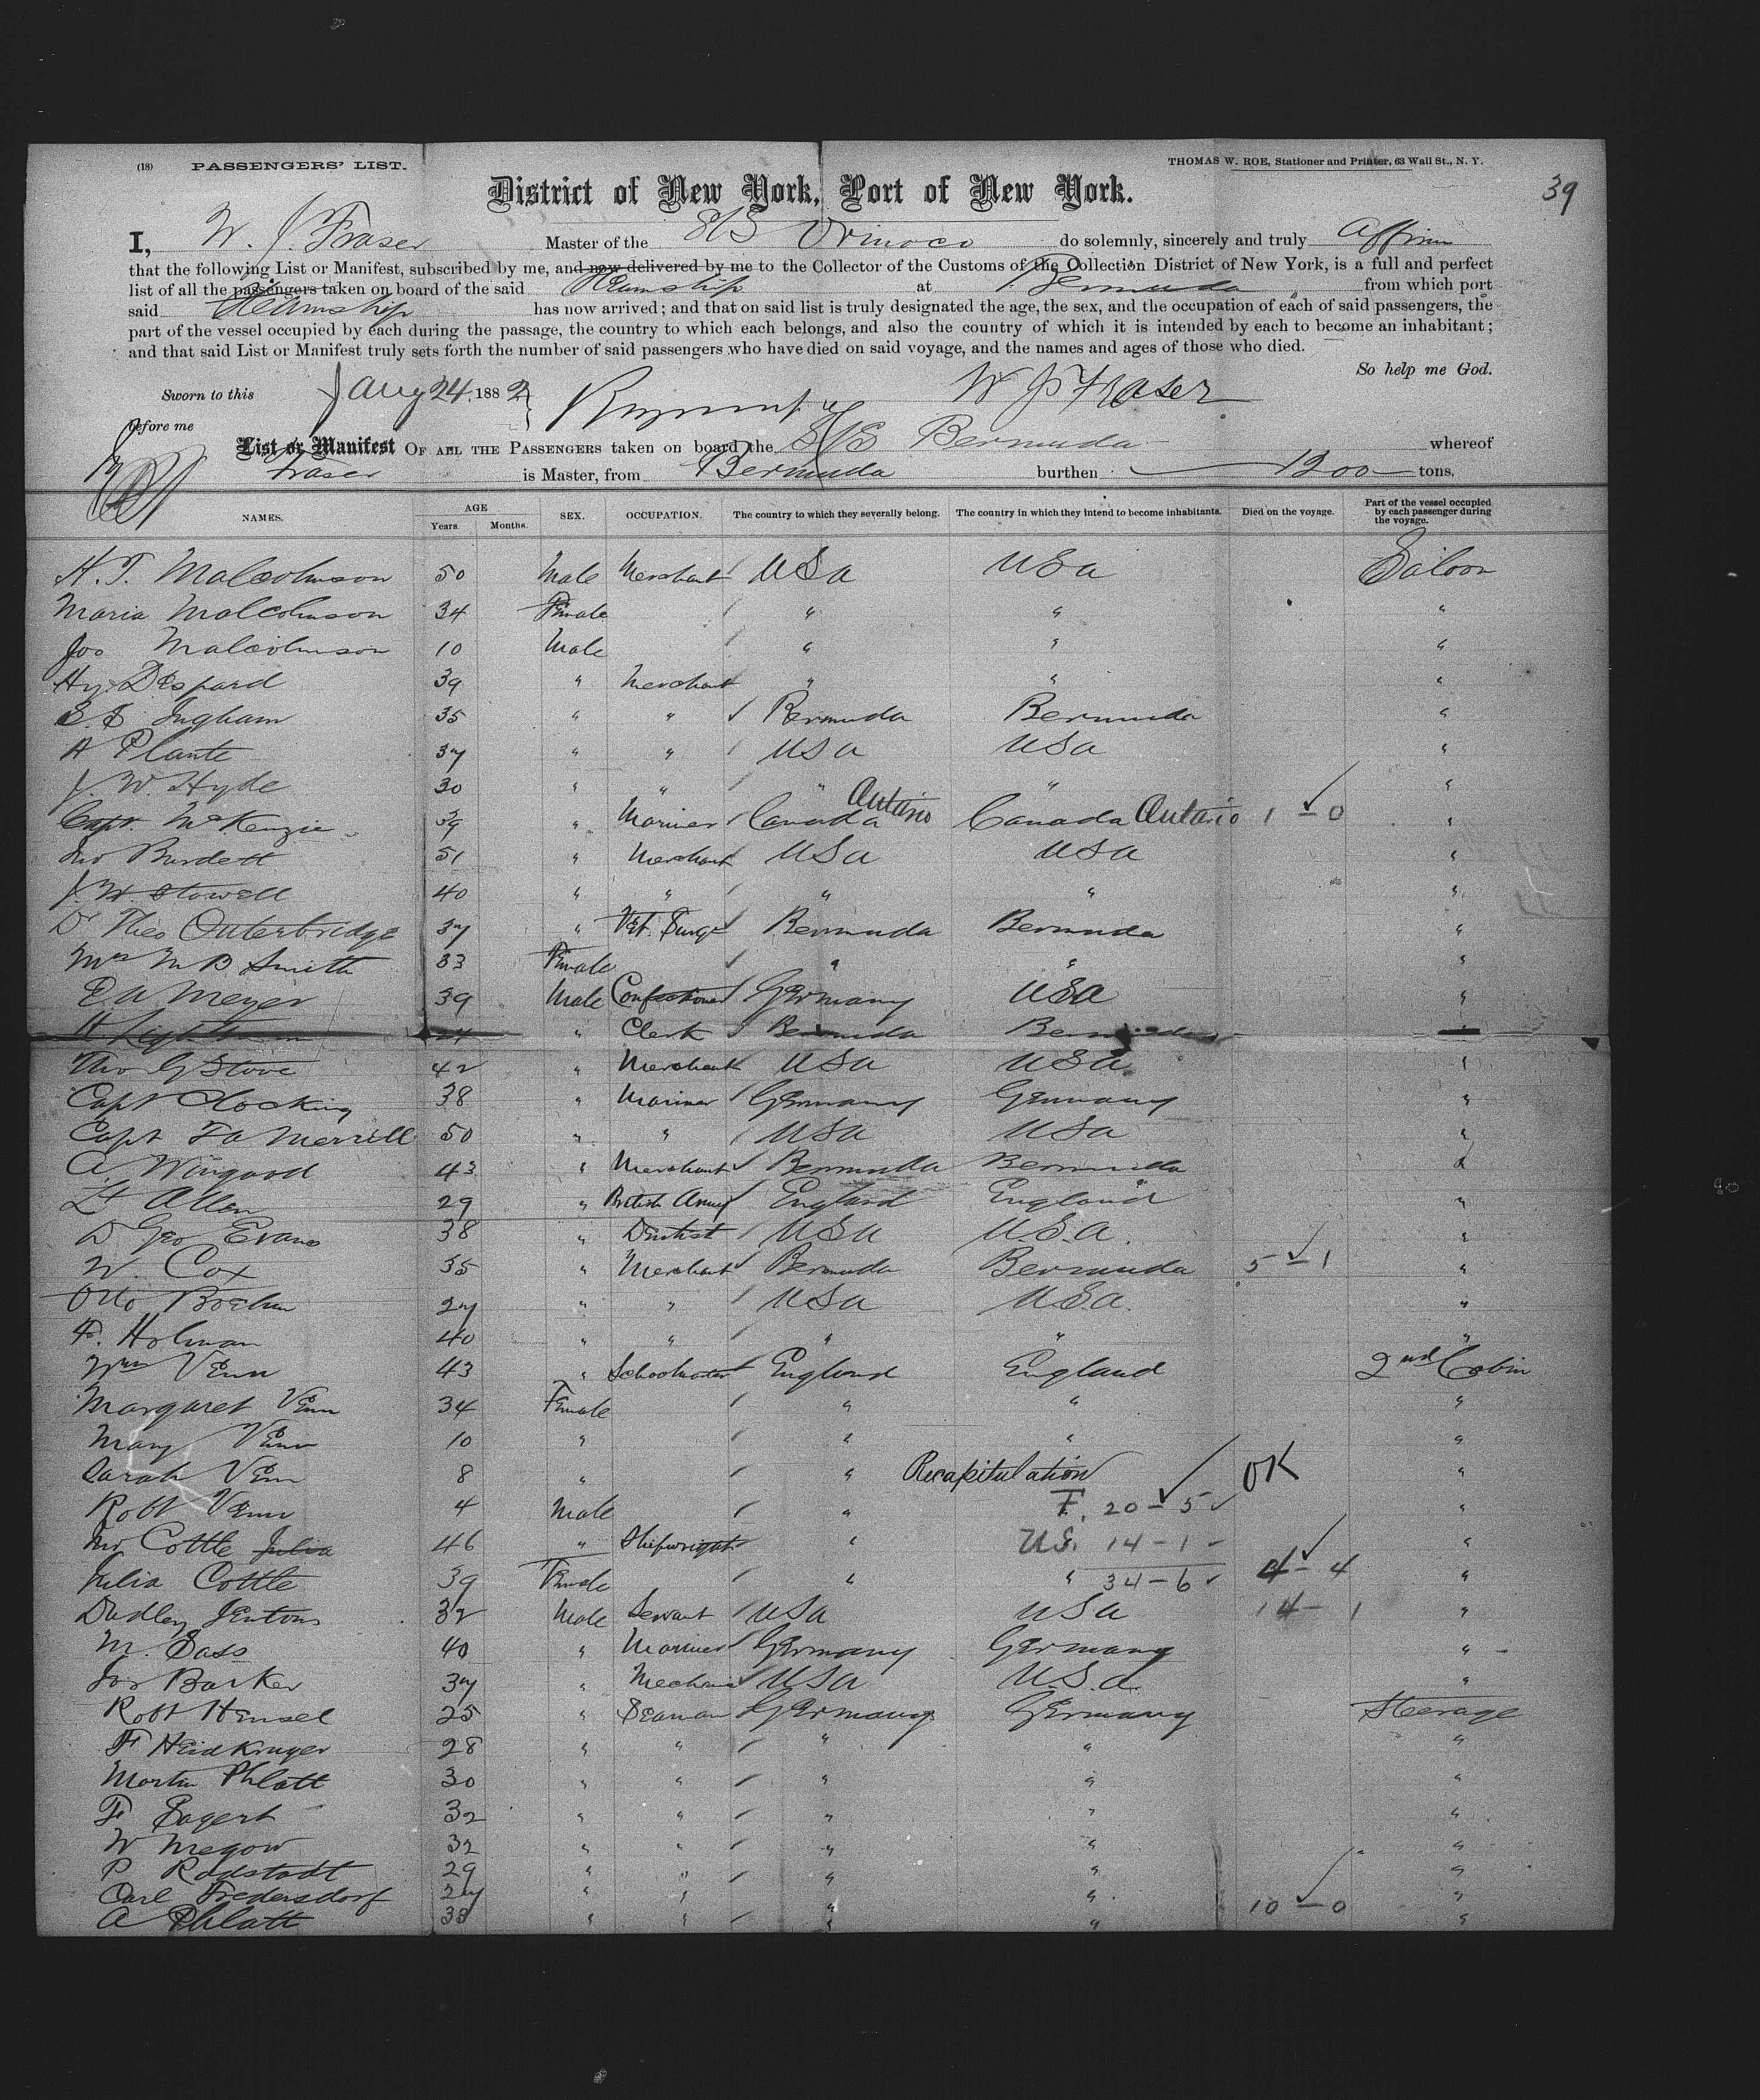 (18) PASSENGERS' LIST. THOMAS W. ROE, Stationer and Printer, 63 Wall St., N. Y.
39
District of New York, Port of New York.
I, W. J. Fraser Master of the S/S Orinoco do solemnly, sincerely and truly affirm
that the following List or Manifest, subscribed by me, and now delivered by me to the Collector of the Customs of the Collection District of New York, is a full and perfect
list of all the passengers taken on board of the said Steamship at Bermuda from which port
said Steamship has now arrived; and that on said list is truly designated the age, the sex, and the occupation of each of said passengers, the
part of the vessel occupied by each during the passage, the country to which each belongs, and also the country of which it is intended by each to become an inhabitant;
and that said List or Manifest truly sets forth the number of said passengers who have died on said voyage, and the names and ages of those who died.
So help me God.
Sworn to this Aug 24, 1882 W J Fraser
before me
List or Manifest OF ALL THE PASSENGERS taken on board the S/S Bermuda whereof
Fraser is Master, from Bermuda burthen 1200 tons.
NAMES. AGE Years. Months. SEX. OCCUPATION. The country to which they severally belong. The country in which they intend to become inhabitants. Died on the voyage. Part of the vessel occupied by each passenger during the voyage.
H. T. Malcolmson 50 Male Merchant USA USA Saloon
Maria Malcolmson 34 Female " " "
Jos Malcolmson 10 Male " " "
Hy. Despard 39 " Merchant " " "
S. S Ingham 35 " " Bermuda Bermuda "
A Plante 37 " " USA USA "
J. W. Hyde 30 " " " " "
Capt. McKenzie 39 " Mariner Canada Antario Canada Antario 1 - 0 "
Jno Burdett 51 " Merchant USA USA "
J. W. Stowell 40 " " " " "
Dr Theo Outerbridge 37 " Vet. Surgn Bermuda Bermuda "
Mrs M B Smith 33 Female " " "
E. A Meyer 39 Male Confectioner Germany USA "
" Clerk Bermuda Bermuda
Tho G Stove 42 " Merchant USA USA "
Capt Clocking 38 " Mariner Germany Germany "
Capt F A Merrill 50 " " USA USA "
C. Wingood 43 " Merchant Bermuda Bermuda "
Lt Allen 29 " British Army England England "
D Geo Evans 38 " Dentist USA U.S.A. "
W. Cox 35 " Merchant Bermuda Bermuda 5 - 1 "
Otto Boehm 27 " " USA USA. "
F. Holman 40 " " " " "
Wm Venn 43 " Schoolmaster England England 2nd Cabin
Margaret Venn 34 Female " " "
Mary Venn 10 " " " "
Sarah Venn 8 " " Recapitulation OK "
Robt Venn 4 Male " F. 20 - 5 "
Jno Cottle Julia 46 " Shipwright " U.S. 14 - 1 "
Julia Cottle 39 Female " " 34 - 6 4 - 4 "
Dudley Jentons 32 Male Servant USA USA 14 - 1 "
M. Sass 40 " Mariner Germany Germany "
Jos Barker 37 " Mechanic USA U.S.A. "
Robt Hensel 25 " Seaman Germany Germany Steerage
F Heidkruger 28 " " " " "
Martin Phlatt 30 " " " " "
F Sagert 32 " " " " "
W Megow 32 " " " " "
P Radstadt 29 " " " " "
Carl Fredersdorf 27 " " " 10 - 0 "
A Phlatt 33 " " " " "